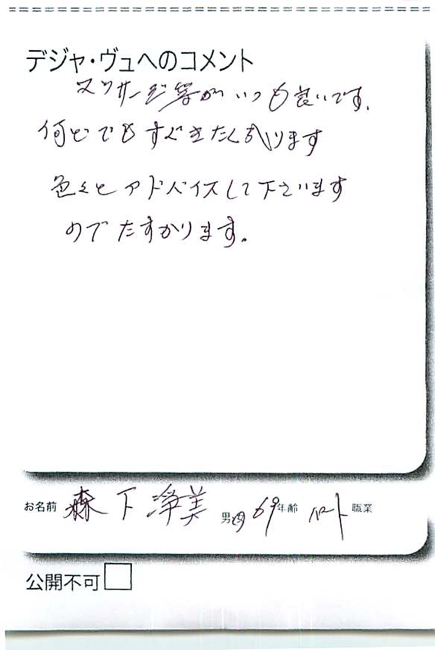 デジャ・ヴュへのコメント
マッサージ等がいつも良いです。
何どでもすぐきたくなります
色々とアドバイスして下さいます
のでたすかります。
お名前 森下浄美 男 女 69 年齢 パート 職業
公開不可